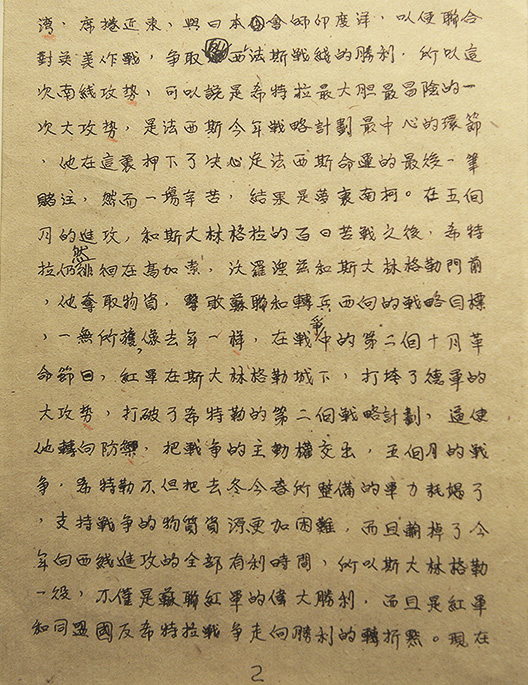 湾，席捲近東，與日本會師印度洋，以便聯合
對英美作戰，爭取西法斯戰綫的勝利，所以這
次南线攻势，可以説是希特拉最大胆最冒險的一
次大攻势，是法西斯今年戰略計劃最中心的環節
，他在這裏押下了决心是法西斯命運的最後一筆
賭注，然而一場辛苦，結果是夢裏南柯。在五個
月的進攻，和斯大林格拉的百日苦戰之後，希特
拉仍然徘徊在高加索，沃羅涅兹和斯大林格勒門前
，他奪取物資，擊敗蘇聯和轉兵西向的戰略目標
，一無所獲，像去年一樣，在戰爭中的第二個十月革
命節日，紅軍在斯大林格勒城下，打垮了德軍的
大攻势，打破了希特勒的第二個戰略計劃，逼使
他轉向防禦，把戰爭的主動權交出，五個月的戰
爭，希特勒不但把去冬今春所整備的軍力耗竭了
，支持戰爭的物質資源更加困難，而且輸掉了今
年向西线進攻的全部有利時間，所以斯大林格勒
一役，不僅是蘇聯紅軍的偉大勝利，而且是紅軍
和同盟國反希特拉戰爭走向勝利的轉折點。現在
2